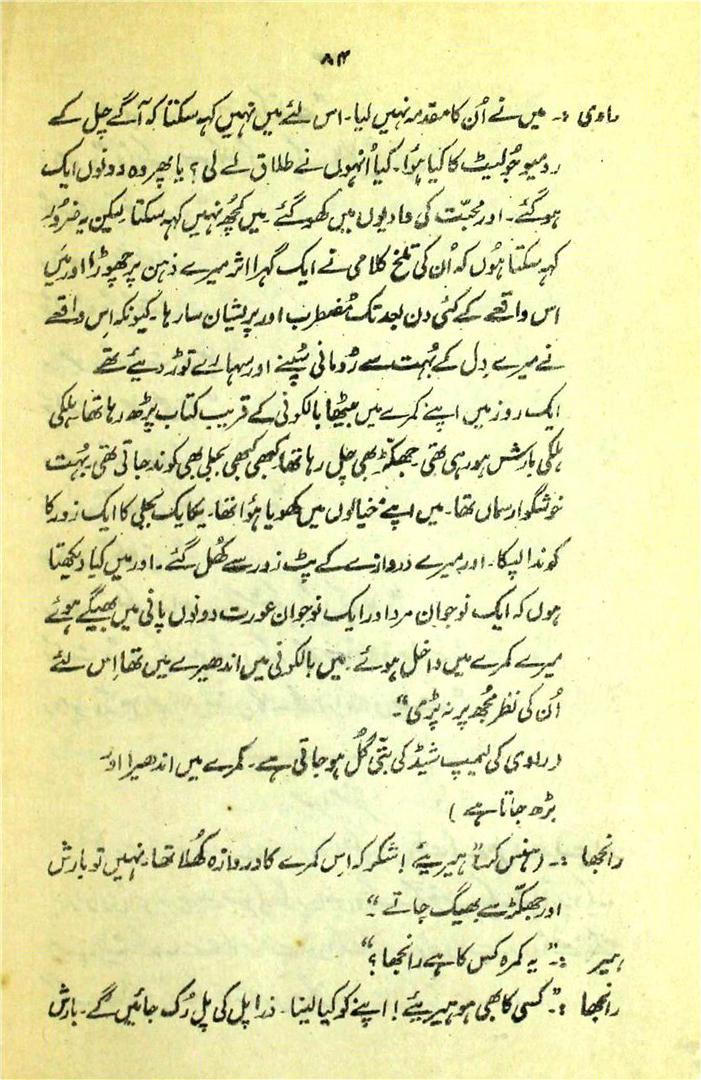 ۸۴
راوی :۔ میں نے اُن کا مقدمہ نہیں لیا۔ اس لئے میں نہیں کہہ سکتا کہ آگے چل کے
رومیو جولیٹ کا کیا ہوُا۔ کیا اُنہوں نے طلاق لے لی؟ یا پھر وہ دونوں ایک
ہو گئے۔ اور محبّت کی وادیوں میں کھو گئے۔ میں کچُھ نہیں کہہ سکتا۔ لیکن یہ ضرُور
کہہ سکتا ہوُں کہ اُن کی تلخ کلامی نے ایک گہرا اثر میرے ذہن پر چھوڑا اور میَں
اس واقعے کے کئی دن بعد تک مُضطرب اور پریشان سا رہا۔ کیونکہ اِس واقعے
نے میرے دِل کے بہُت سے رُومانی سُپنے اور سہارے توڑ دیئے تھے
ایک روز میں اپنے کمرے میں بیٹھا بالکونی کے قریب کتاب پڑھ رہا تھا۔ ہلکی
ہلکی بارش ہو رہی تھی۔ جھکڑ بھی چل رہا تھا۔ کبھی کبھی بجلی بھی کوند جاتی تھی۔ بہُت
خوشگوار سماں تھا۔ میں اپنے خیالوں میں کھویا ہوُا تھا۔ یکایک بجلی کا ایک زور کا
کوندا لپکا۔ اور میرے دروازے کے پٹ زور سے کھُل گئے۔ اور میں کیا دیکھتا
ہوں کہ ایک نوجوان مرد اور ایک نوجوان عورت دونوں پانی میں بھیگے ہوئے
میرے کمرے میں داخل ہوئے۔ میں بالکونی میں اندھیرے میں تھا اِس لئے
اُن کی نظر مُجھ پر نہ پڑی“۔
(راوی کی لیمپ شیڈ کی بتّی گُل ہو جاتی ہے۔ کمرے میں اندھیرا اور
بڑھ جاتا ہے)
رانجھا :۔ (ہنس کر) ”ہیریئے! شکر کہ اس کمرے کا دروازہ کھُلا تھا۔ نہیں تو بارش
اور جھکّڑ سے بھیگ جاتے“۔
ہیر :۔ ”یہ کمرہ کس کا ہے رانجھا؟“
رانجھا :۔ ”کسی کا بھی ہو ہیریئے! اپنے کو کیا لینا۔ ذرا پل کی پل رُک جائیں گے۔ بارش